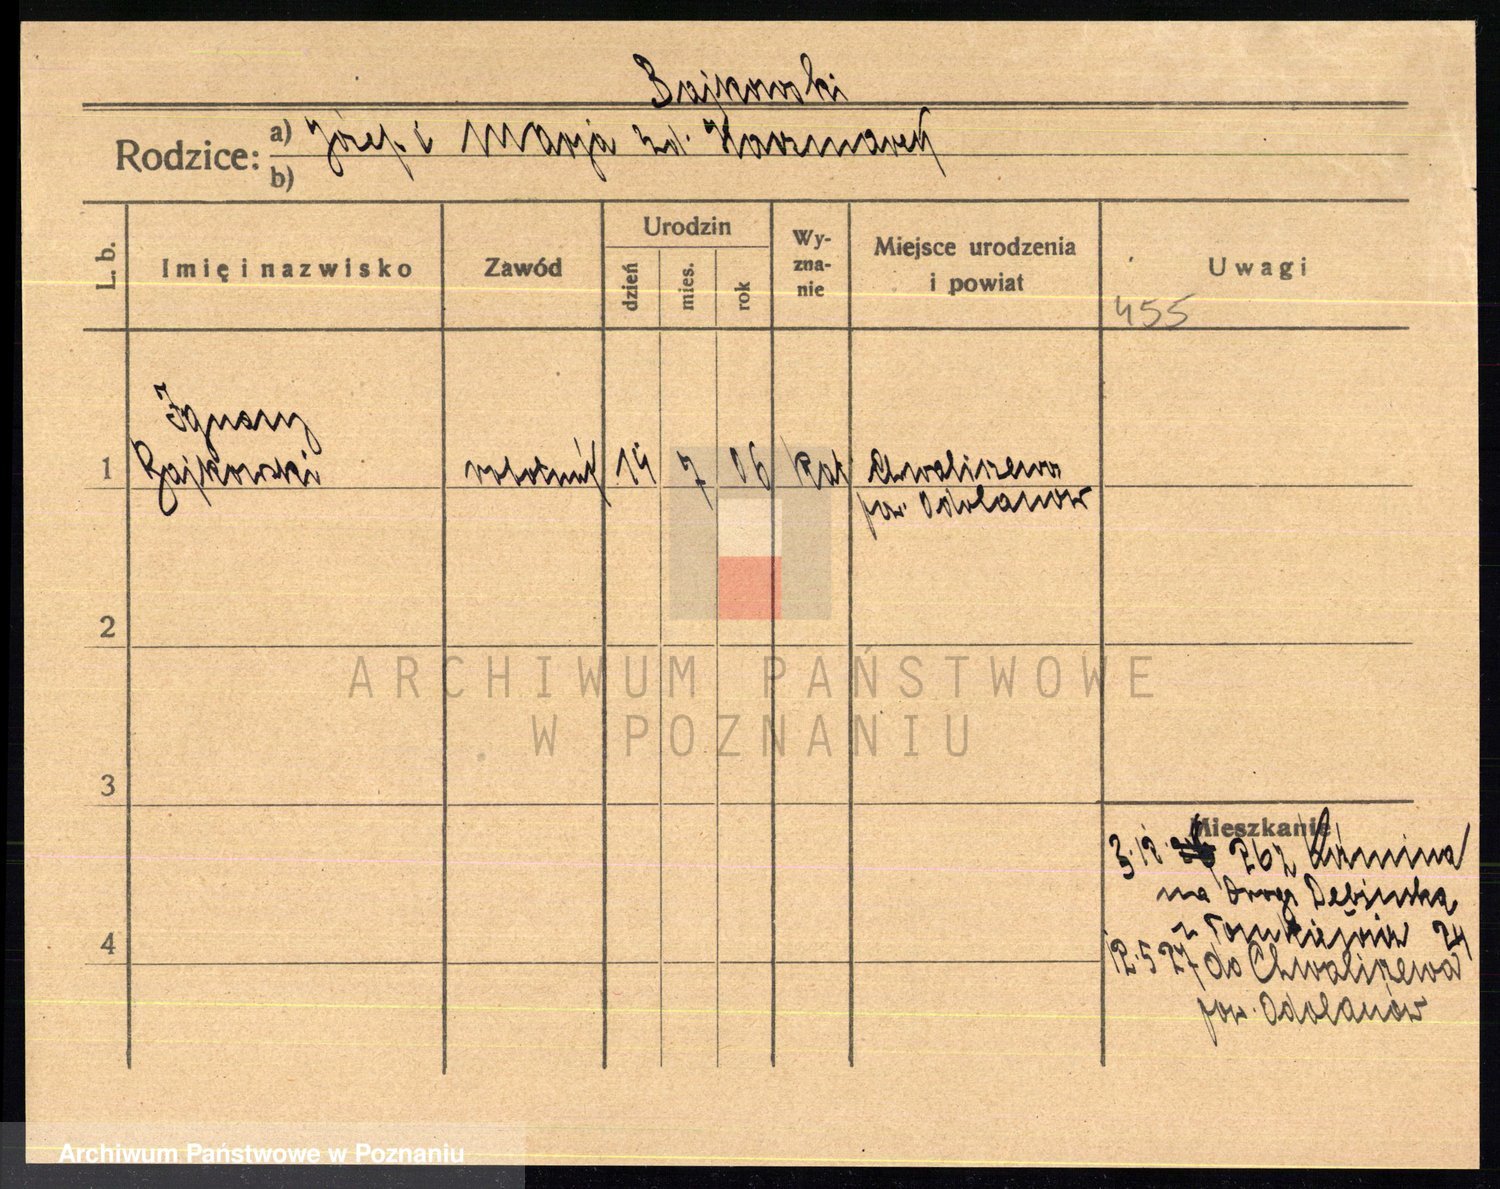 Bajkowski
Rodzice: a) Józef i Marja zd. Kaczmarek
b)
L. b.
Imię i nazwisko
Zawód
Urodzin
dzień
mies.
rok
Wy-
zna-
nie
Miejsce urodzenia
i powiat
Uwagi
455
Ignacy
1 Bajkowski robotnik 14 7 06 kat Chwaliszewo
pow. Odolanów
2
3
4
ARCHIWUM PAŃSTWOWE
W POZNANIU
Mieszkanie
3.12.26
na Drogę Dębińską
24
12.5 27 do Chwaliszewa
pow. Odolanów
Archiwum Państwowe w Poznaniu